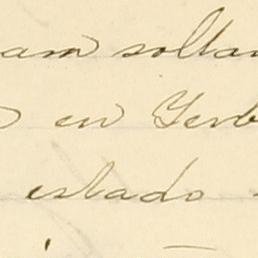 am soltan
en Yerb
estado